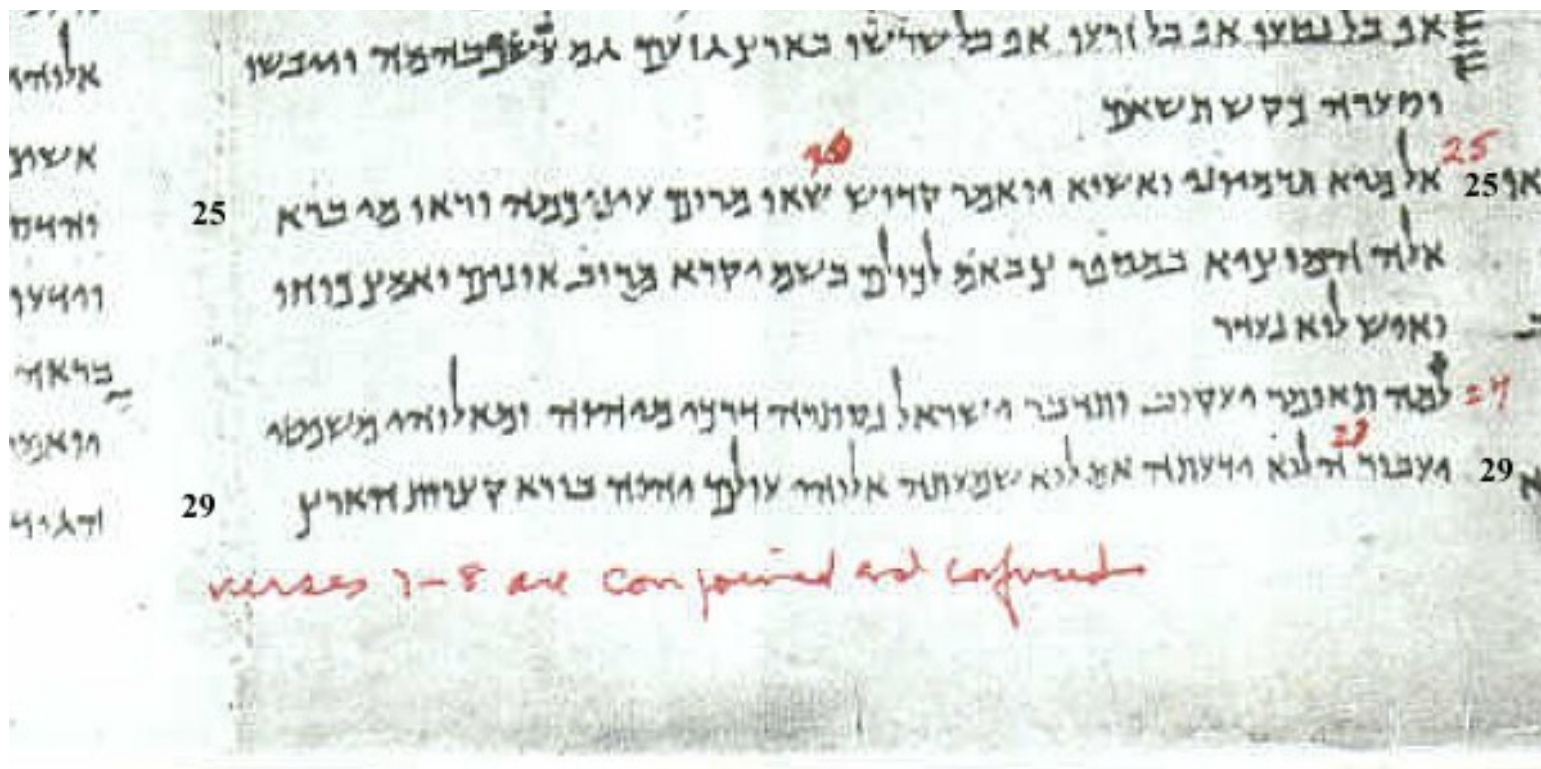 אף בל נטעו אף בל זרעו אף בל שרישו בארץ גזעם גם נשף בהמה ויבשו
וסערה כקש תשאם
25
25 אל מיא תדמיוני ואשוא ויאמר קדוש שאו מרום עיניכמה וראו מי ברא 25
אלה המוציא במספר צבאם לכולם בשם יקרא מרוב אונים ואמץ כוחו
ואיש לוא נעדר
27 למה תאומר יעקוב ותדבר ישראל נסתרה דרכי מיהוה ומאלוהי משפטי
28
29 יעבור הלוא ידעתה אם לוא שמעתה אלוהי עולם יהוה בורא קצוות הארץ 29
verses 7-8 are conjoined and confused
אלוהי